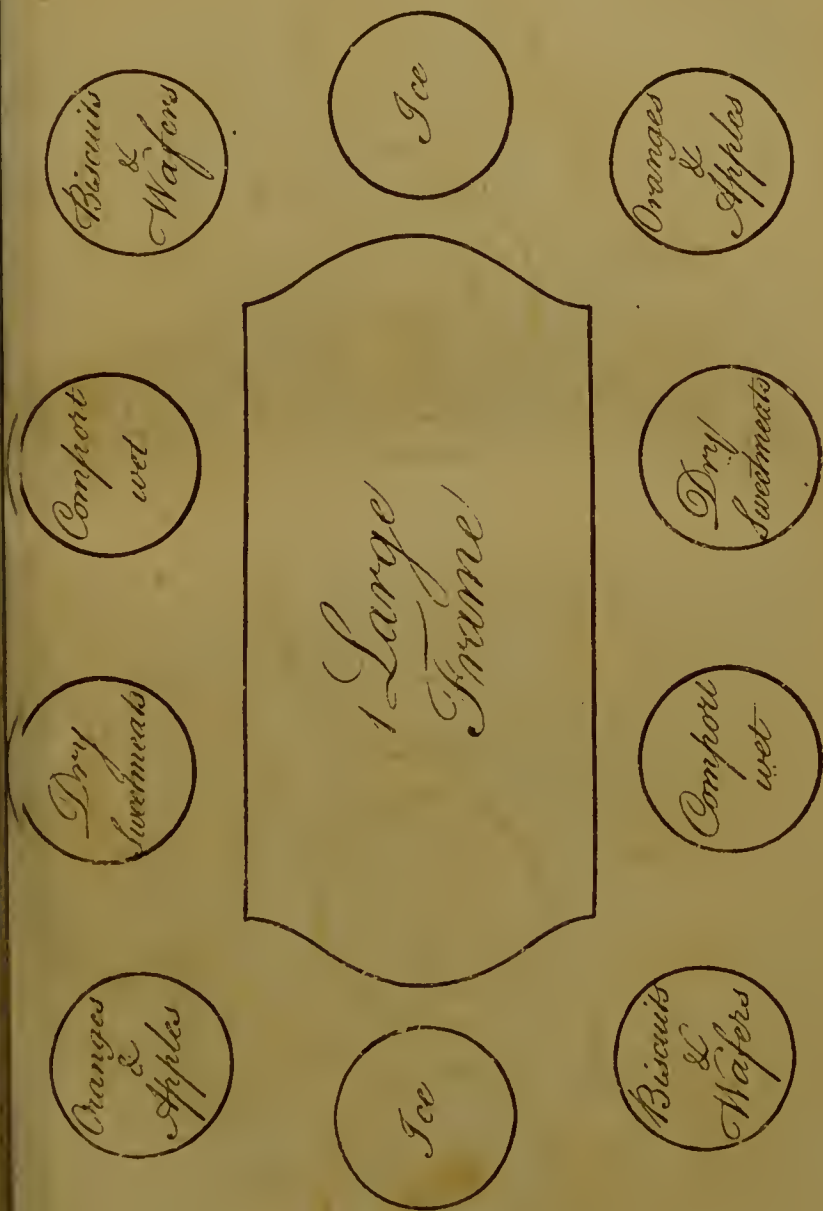 Oranges
&
Apples
Dry
Sweetmeats
Comport
wet
Biscuits
&
Wafers
Ice
1 Large
Frame
Ice
Biscuits
&
Wafers
Comport
wet
Dry
Sweetmeats
Oranges
&
Apples